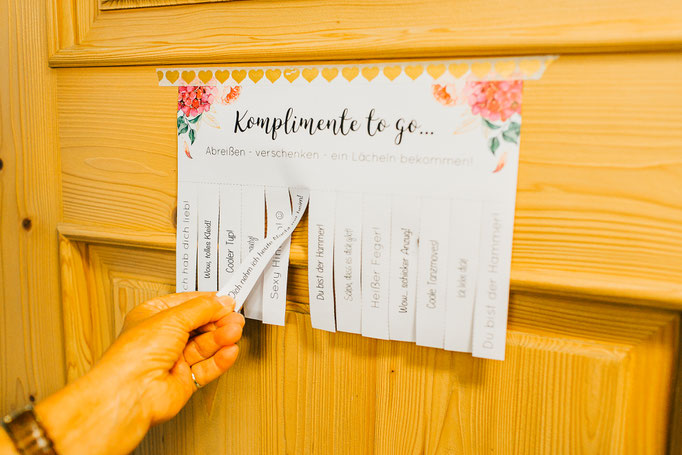 Komplimente to go...
Abreißen - verschenken - ein Lächeln bekommen!
Ich hab dich lieb!
Wow, tolles Kleid!
Cooler Typ!
Dich nehm ich heute
Sexy
Du bist der Hammer!
Schön, dass es dich gibt!
Heißer Feger!
Wow... schicker Anzug!
Coole Tanzmoves!
Du bist der Hammer!